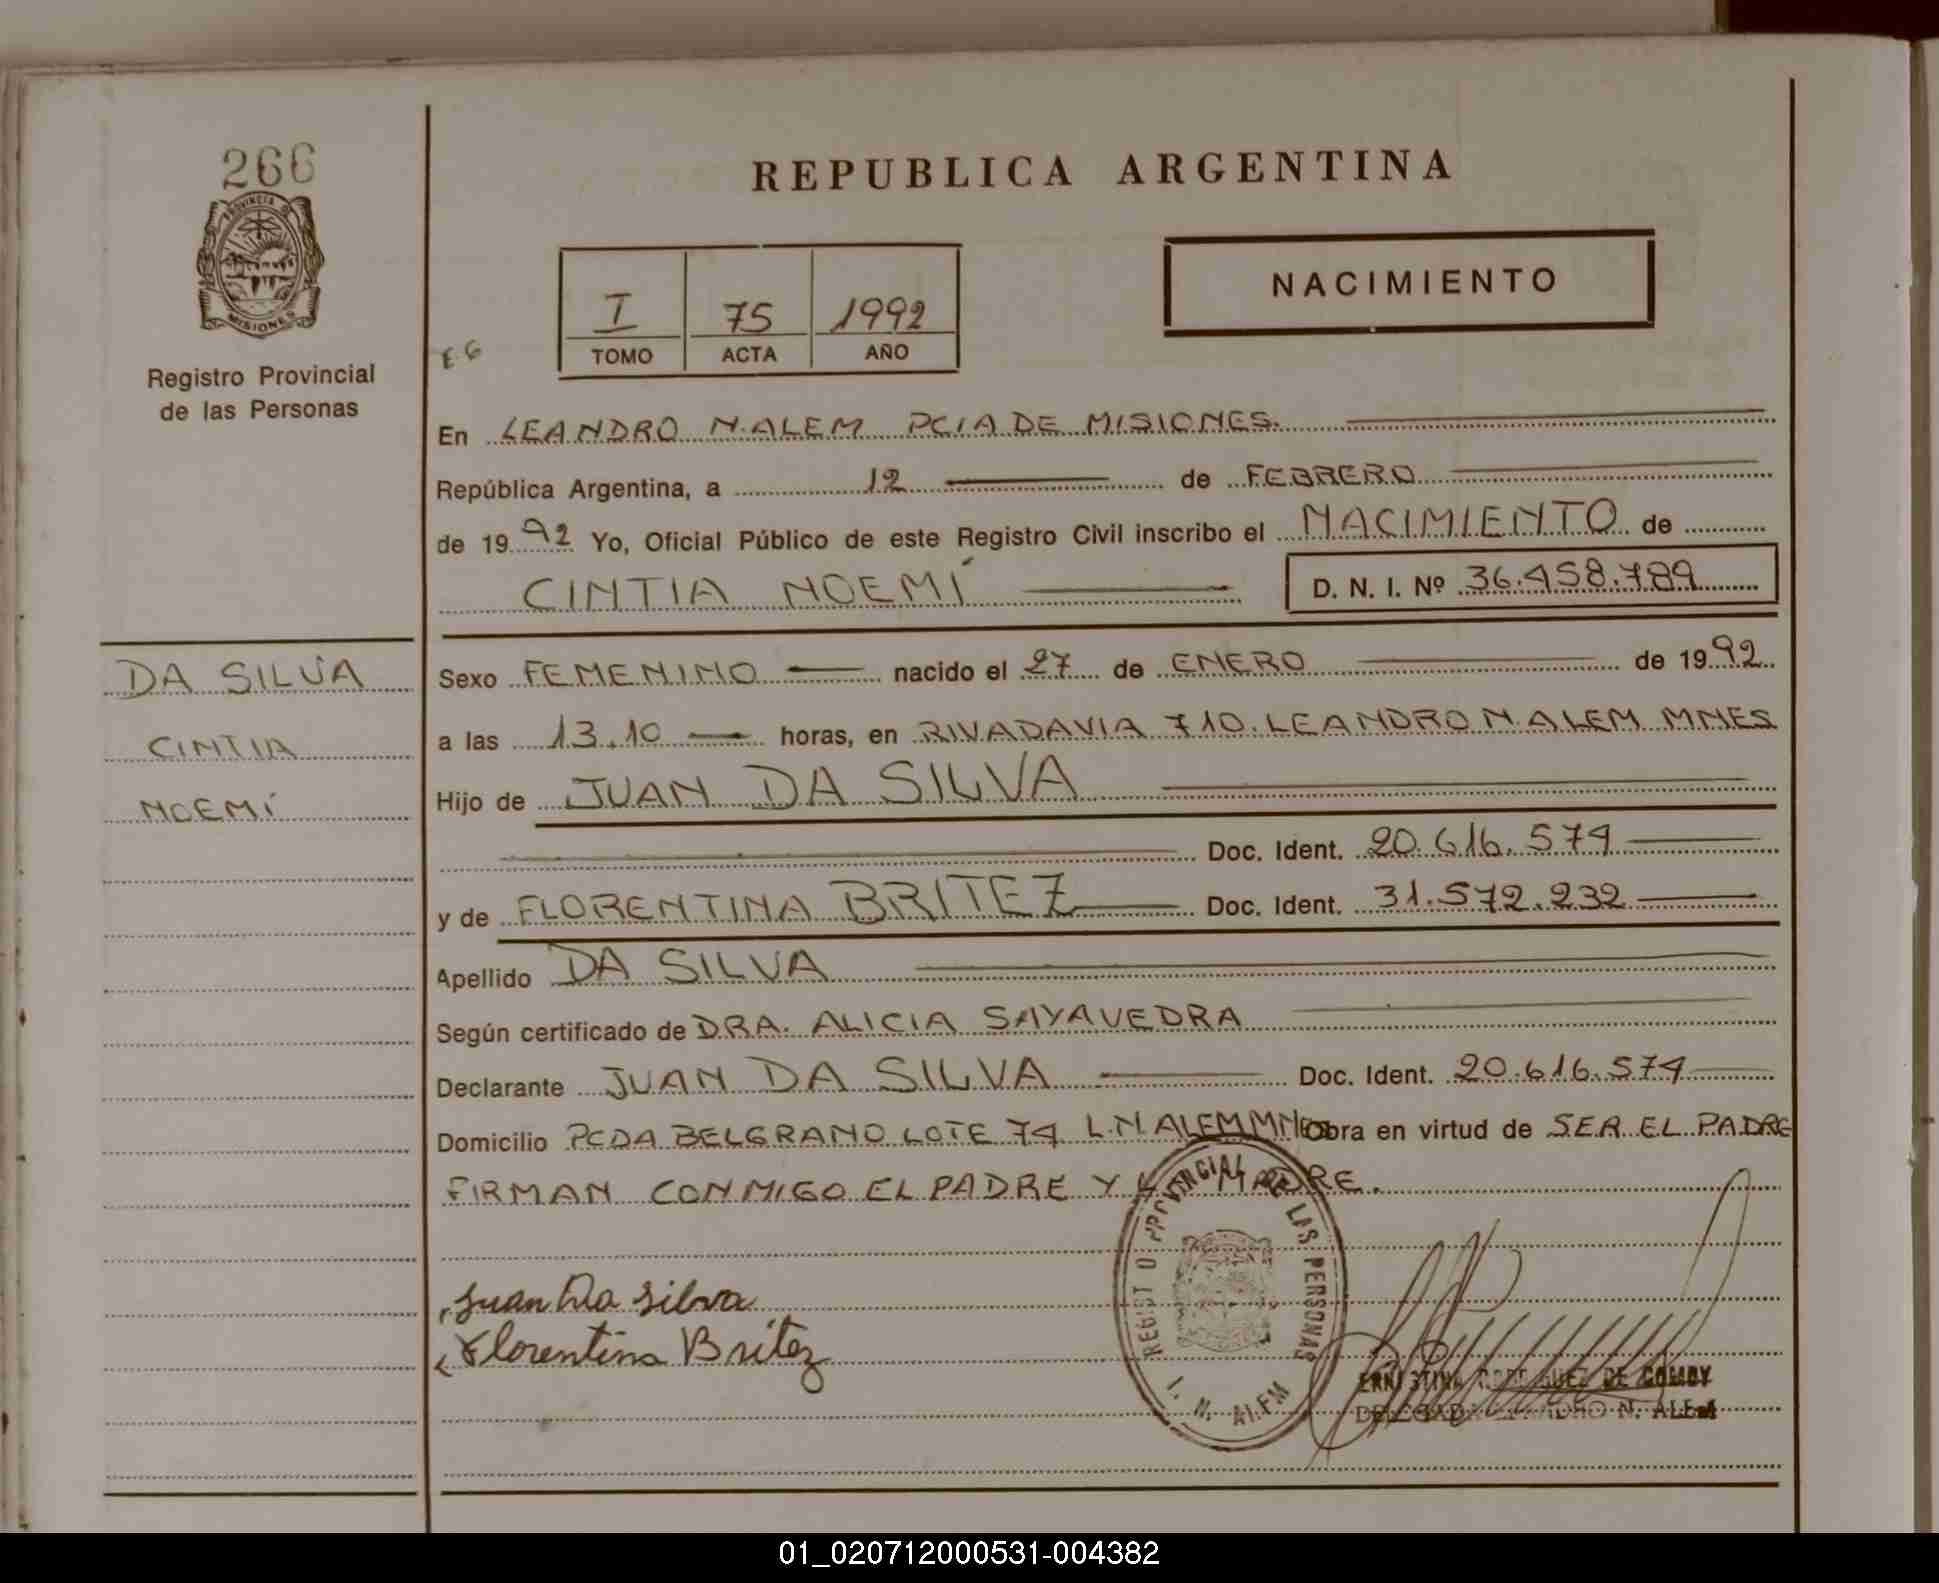 266
PROVINCIA D
MISIONES
Registro Provincial
de las Personas
REPUBLICA ARGENTINA
I 75 1992
TOMO ACTA AÑO
NACIMIENTO
E6
En LEANDRO N. ALEM PCIA DE MISIONES.
República Argentina, a 12 de FEBRERO
de 1992 Yo, Oficial Público de este Registro Civil inscribo el NACIMIENTO de
CINTIA NOEMÍ D. N. I. Nº 36.458.789
DA SILVA
CINTIA
NOEMÍ
Sexo FEMENINO nacido el 27 de ENERO de 1992
a las 13.10 horas, en RIVADAVIA 710. LEANDRO N. ALEM MNES
Hijo de JUAN DA SILVA
Doc. Ident. 20.616.574
y de FLORENTINA BRITEZ Doc. Ident. 31.572.232
Apellido DA SILVA
Según certificado de DRA. ALICIA SAYAVEDRA
Declarante JUAN DA SILVA Doc. Ident. 20.616.574
Domicilio PCDA BELGRANO LOTE 74 L.N ALEM MNES Obra en virtud de SER EL PADRE
FIRMAN CONMIGO EL PADRE Y LA MADRE.
Juan Da silva
Florentina Britez
REGISTRO PROVINCIAL DE LAS PERSONAS
L. N. ALEM
ERNESTINA RODRIGUEZ DE GOMOY
DELEGADA LEANDRO N. ALEM
01_020712000531-004382